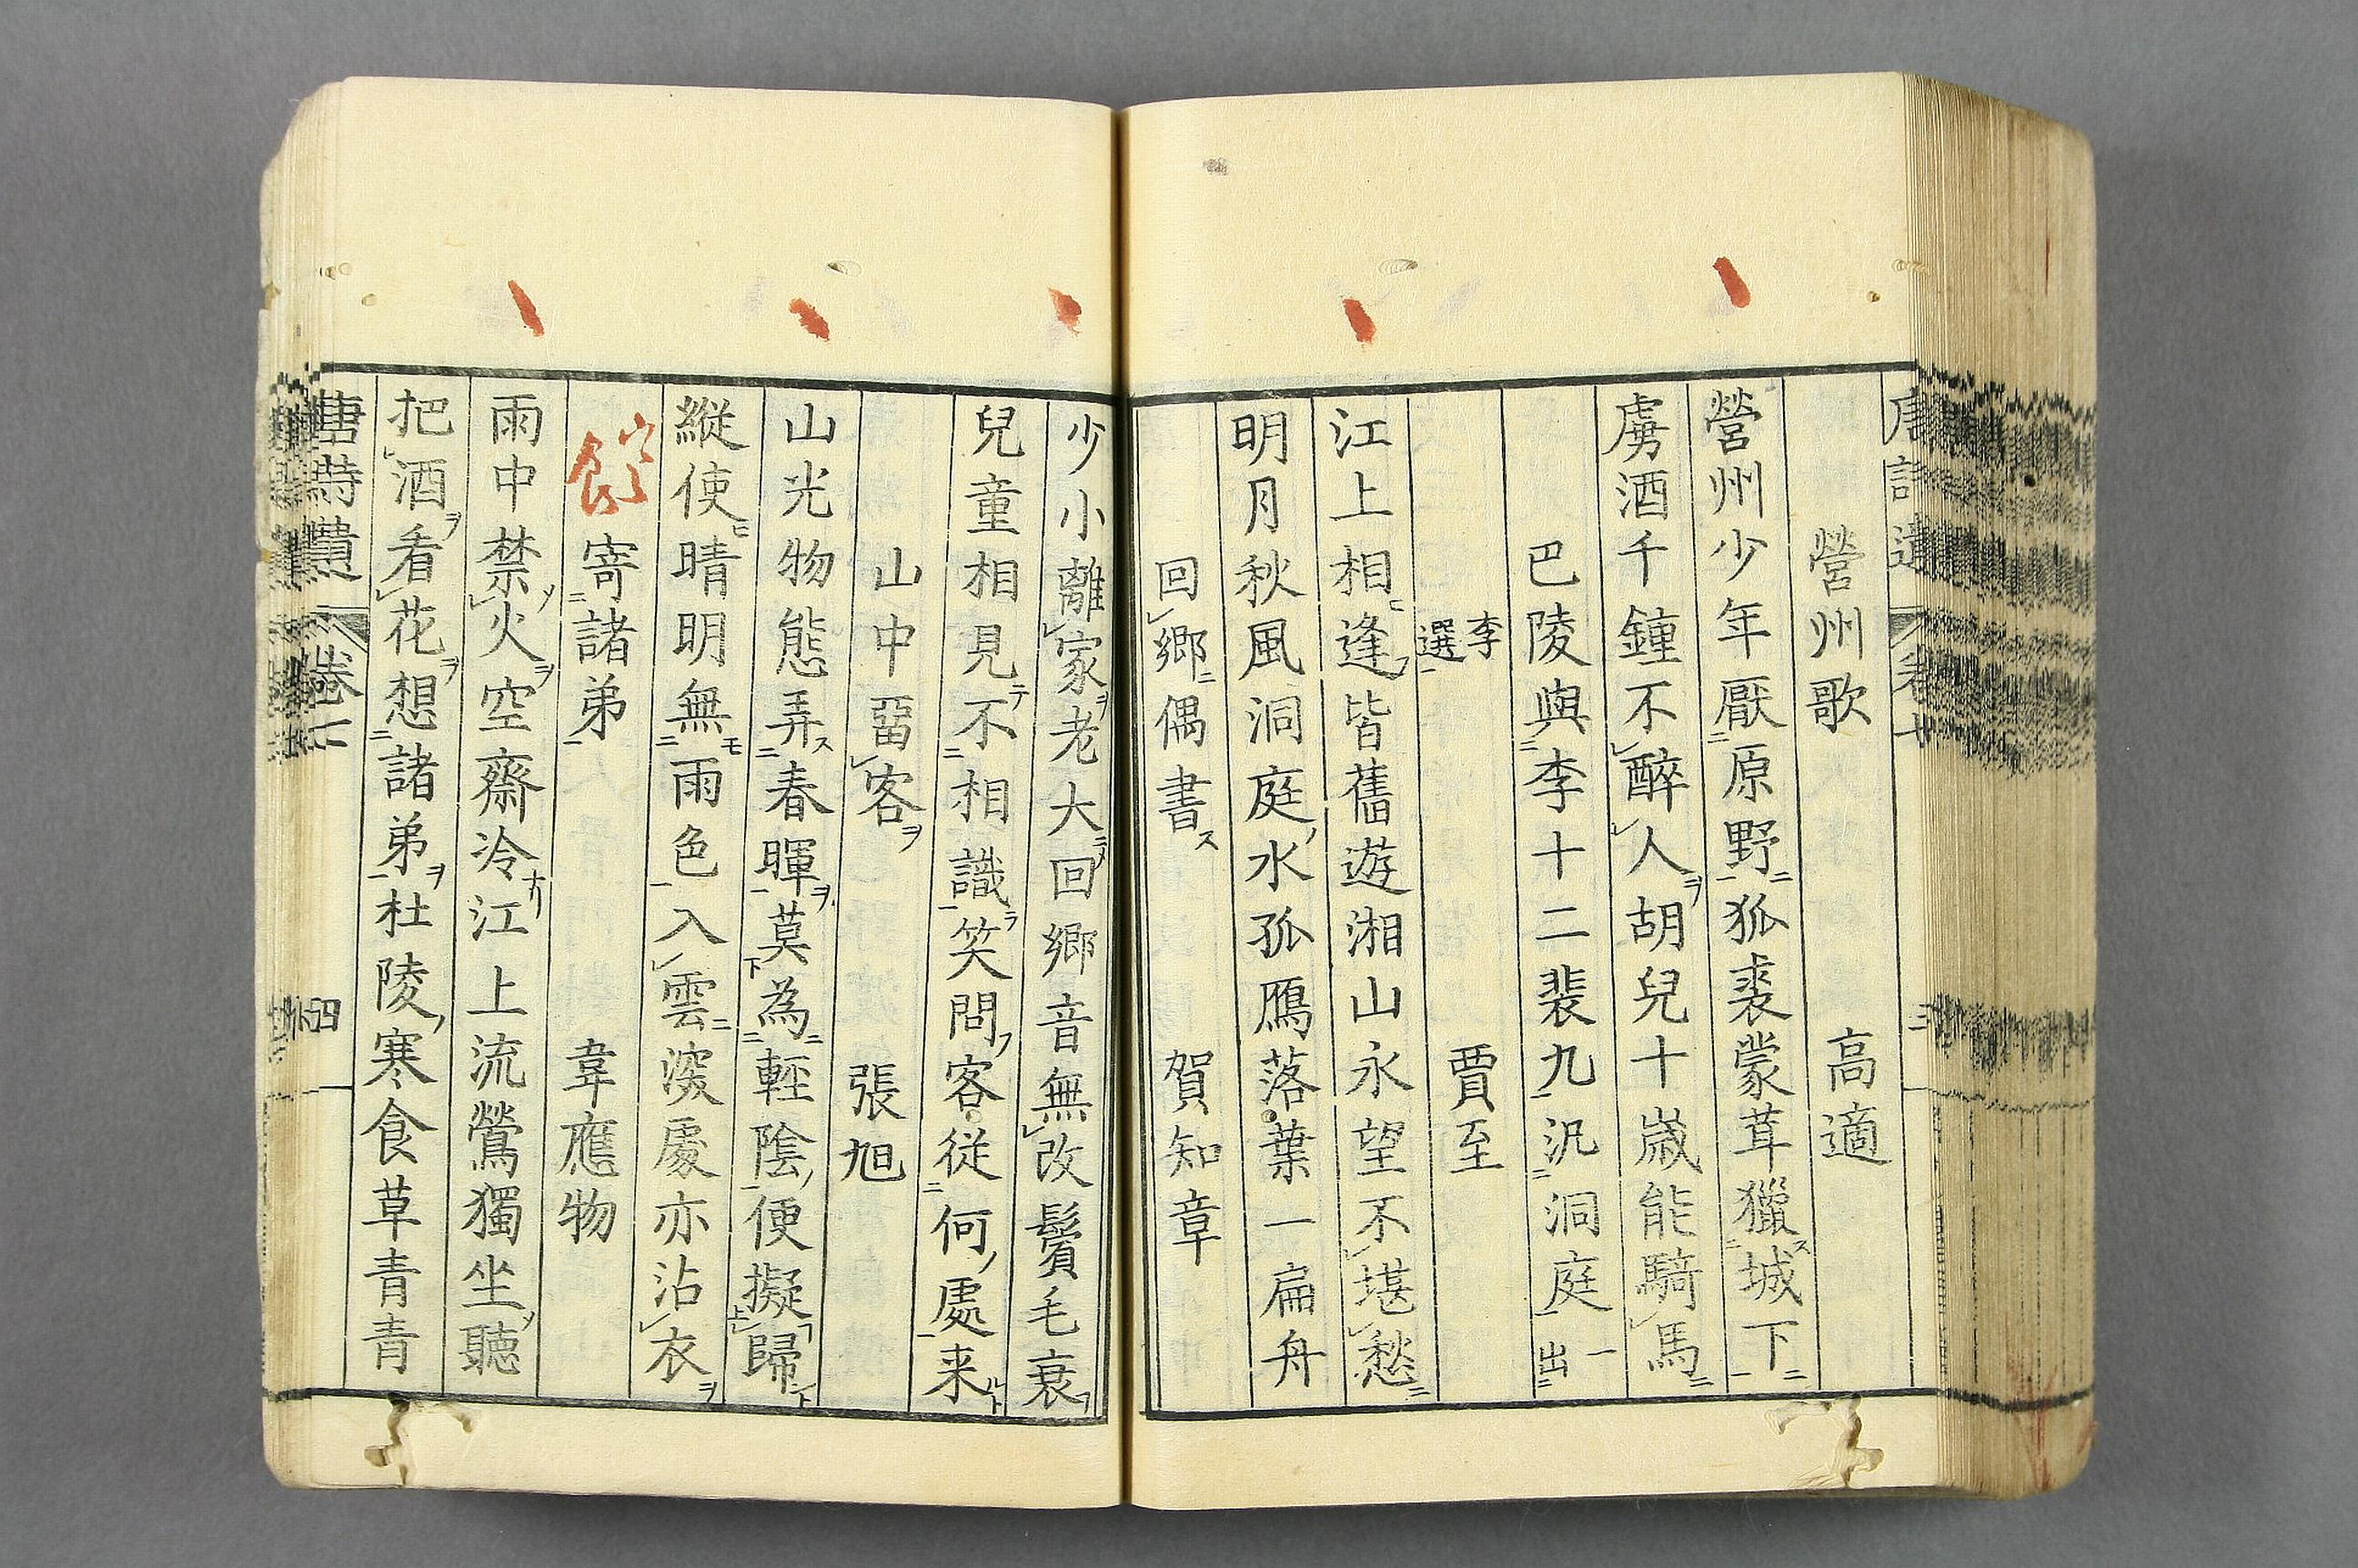 營州歌 高適
營州少年厭原野狐裘蒙茸獵城下
虜酒千鐘不醉人胡兒十歲能騎馬
巴陵與李十二裴九汎洞庭
李選 賈至
江上相逢皆舊遊湘山永望不堪愁
明月秋風洞庭水孤鴈落葉一扁舟
回鄉偶書 賀知章
少小離家老大回鄉音無改鬢毛衰
兒童相見不相識笑問客從何處来
山中畱客 張旭
山光物態弄春暉莫為輕陰便擬歸
縱使晴明無雨色入雲深處亦沾衣
寄諸弟 韋應物
雨中禁火空齋冷江上流鶯獨坐聽
把酒看花想諸弟杜陵寒食草青青